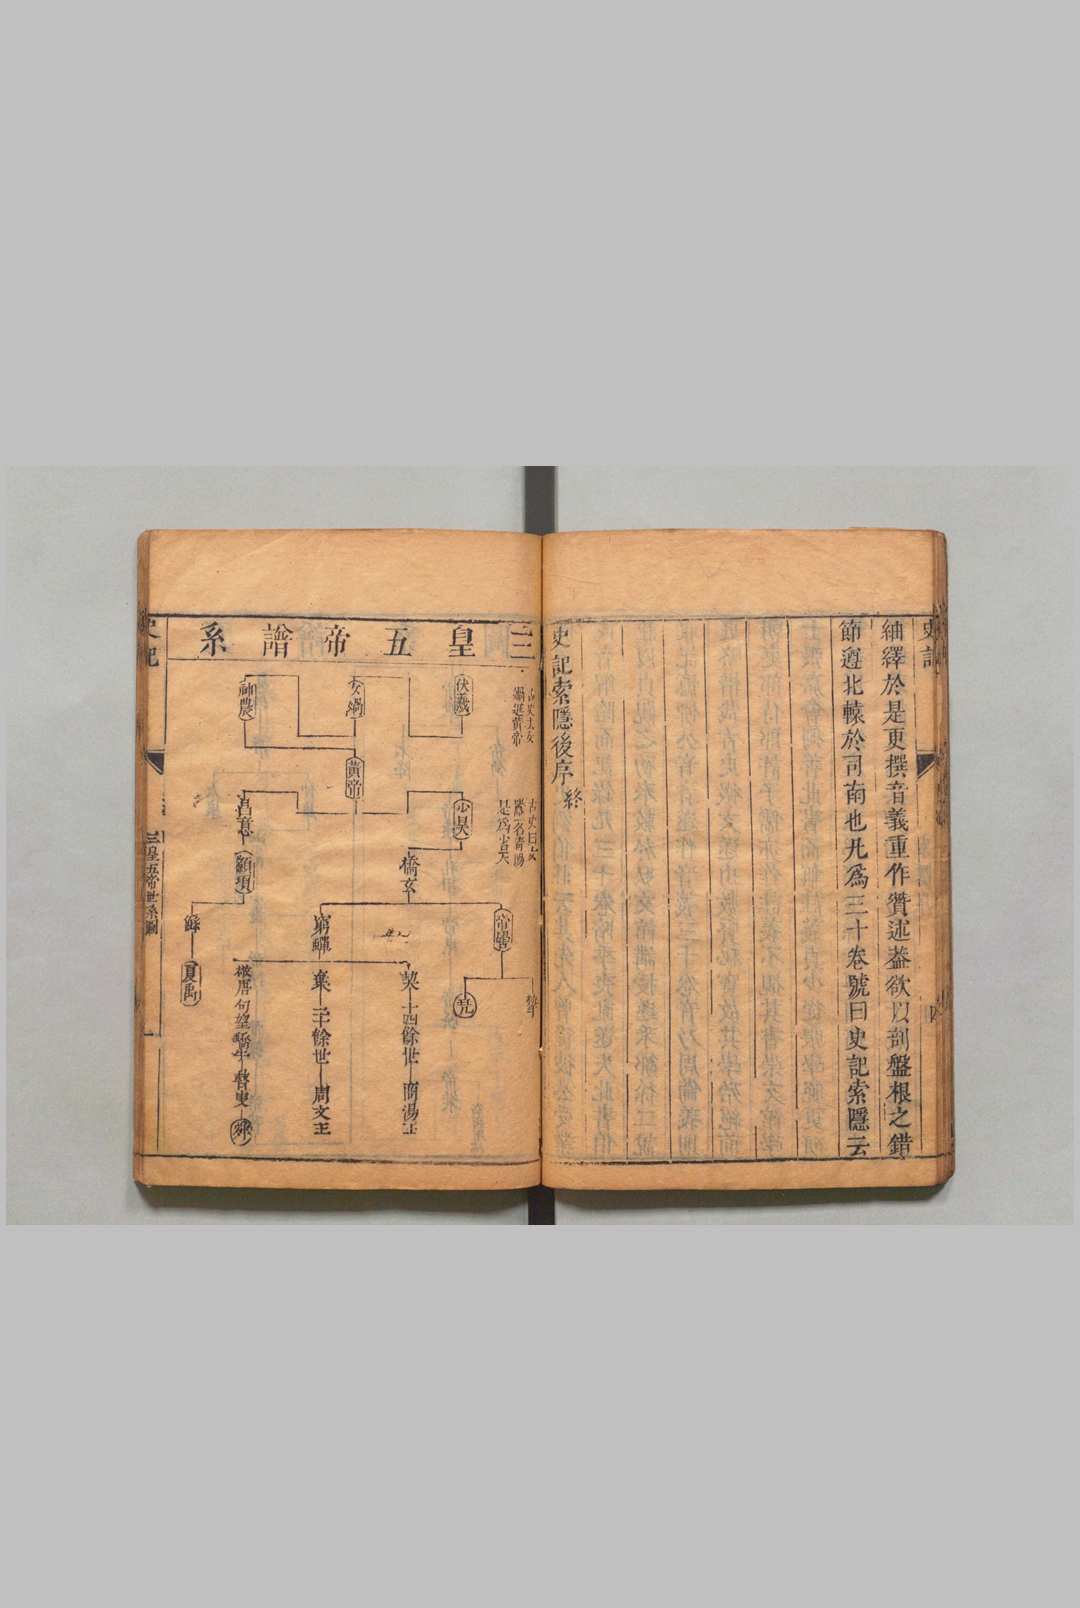 史記
紬繹於是更撰音義重作贊述葢欲以剖盤根之錯
節遵北轅於司南也凡爲三十卷號曰史記索隱云
史記索隱後序終
三皇五帝譜系
伏羲
女媧
神農
黃帝
少昊
昌意
顓頊
橋玄
帝嚳
窮蟬
鯀
夏禹
堯
摯
契 十四餘世 商湯王
棄 二十餘世 周文王
敬康 句望 橋牛 瞽叟 舜
史記
三皇五帝世系圖